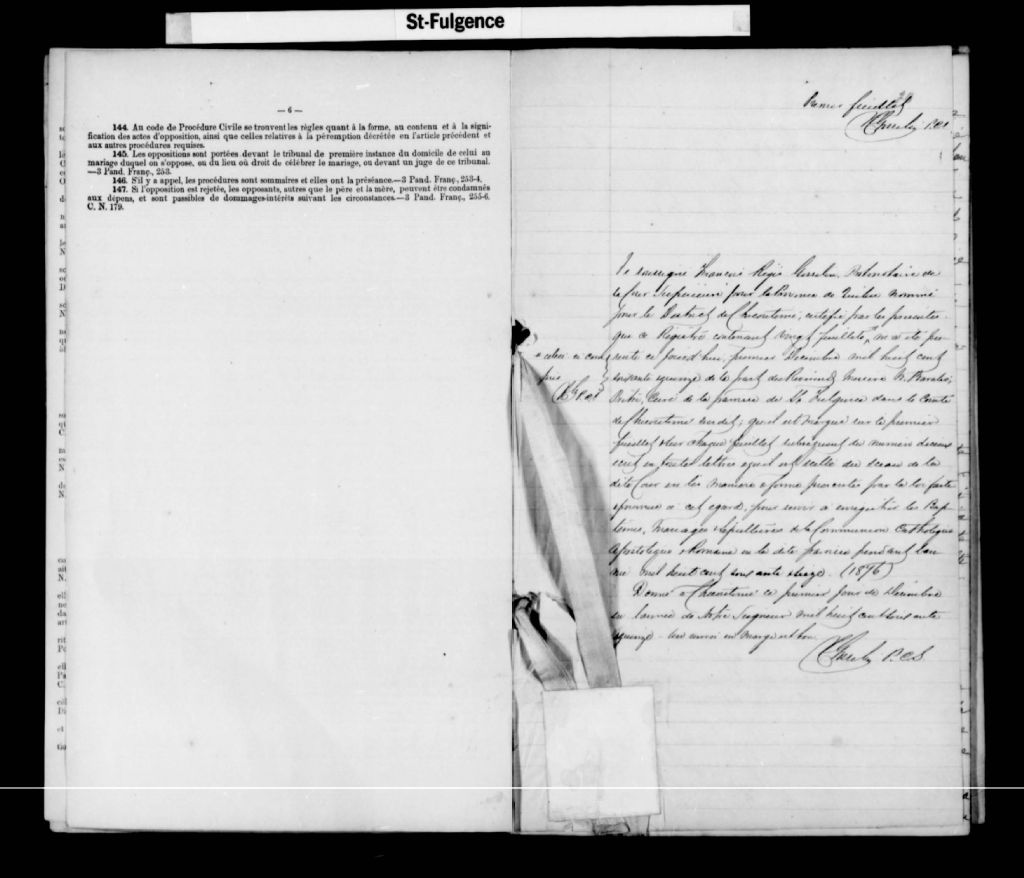 St-Fulgence
— 6 —
144. Au code de Procédure Civile se trouvent les règles quant à la forme, au contenu et à la signi-
fication des actes d'opposition, ainsi que celles relatives à la péremption décrétée en l'article précédent et
aux autres procédures requises.
145. Les oppositions sont portées devant le tribunal de première instance du domicile de celui au
mariage duquel on s'oppose, ou du lieu où droit de célébrer le mariage, ou devant un juge de ce tribunal.
—3 Pand. Franç., 253.
146. S'il y a appel, les procédures sont sommaires et elles ont la préséance.—3 Pand. Franç., 253-4.
147. Si l'opposition est rejetée, les opposants, autres que le père et la mère, peuvent être condamnés
aux dépens, et sont passibles de dommages-intérêts suivant les circonstances.—3 Pand. Franç., 255-6.
C. N. 179.
feuillet
Je soussigné François Régis Gosselin, Protonotaire de
la Cour Supérieure pour la Province de Québec nommé
pour le District de Chicoutimi, certifie par les présentes
que ce Registre contenant vingt feuillets m'a été pré-
senté ce jourd'hui, premier Décembre mil huit cent
soixante & quinze de la part du Révérend Messire
Prêtre, Curé de la paroisse de St Fulgence dans le Comté
de Chicoutimi susdit; qu'il est marqué sur le premier
feuillet & sur chaque feuillet subséquent du numéro
écrit en toutes lettres & qu'il est scellé du sceau de la
dite Cour en la manière & forme prescrites par la loi faite
& pourvue à cet égard, pour servir à enregistrer les Bap-
têmes, Mariages & Sépultures de la Communion Catholique
Apostolique & Romaine en la dite paroisse pendant l'an
née mil huit cent soixante & seize. (1876)
Donné à Chicoutimi ce premier jour de Décembre
en l'année de Notre Seigneur mil huit cent soixante
& quinze – Un renvoi en marge est bon.
P.C.S